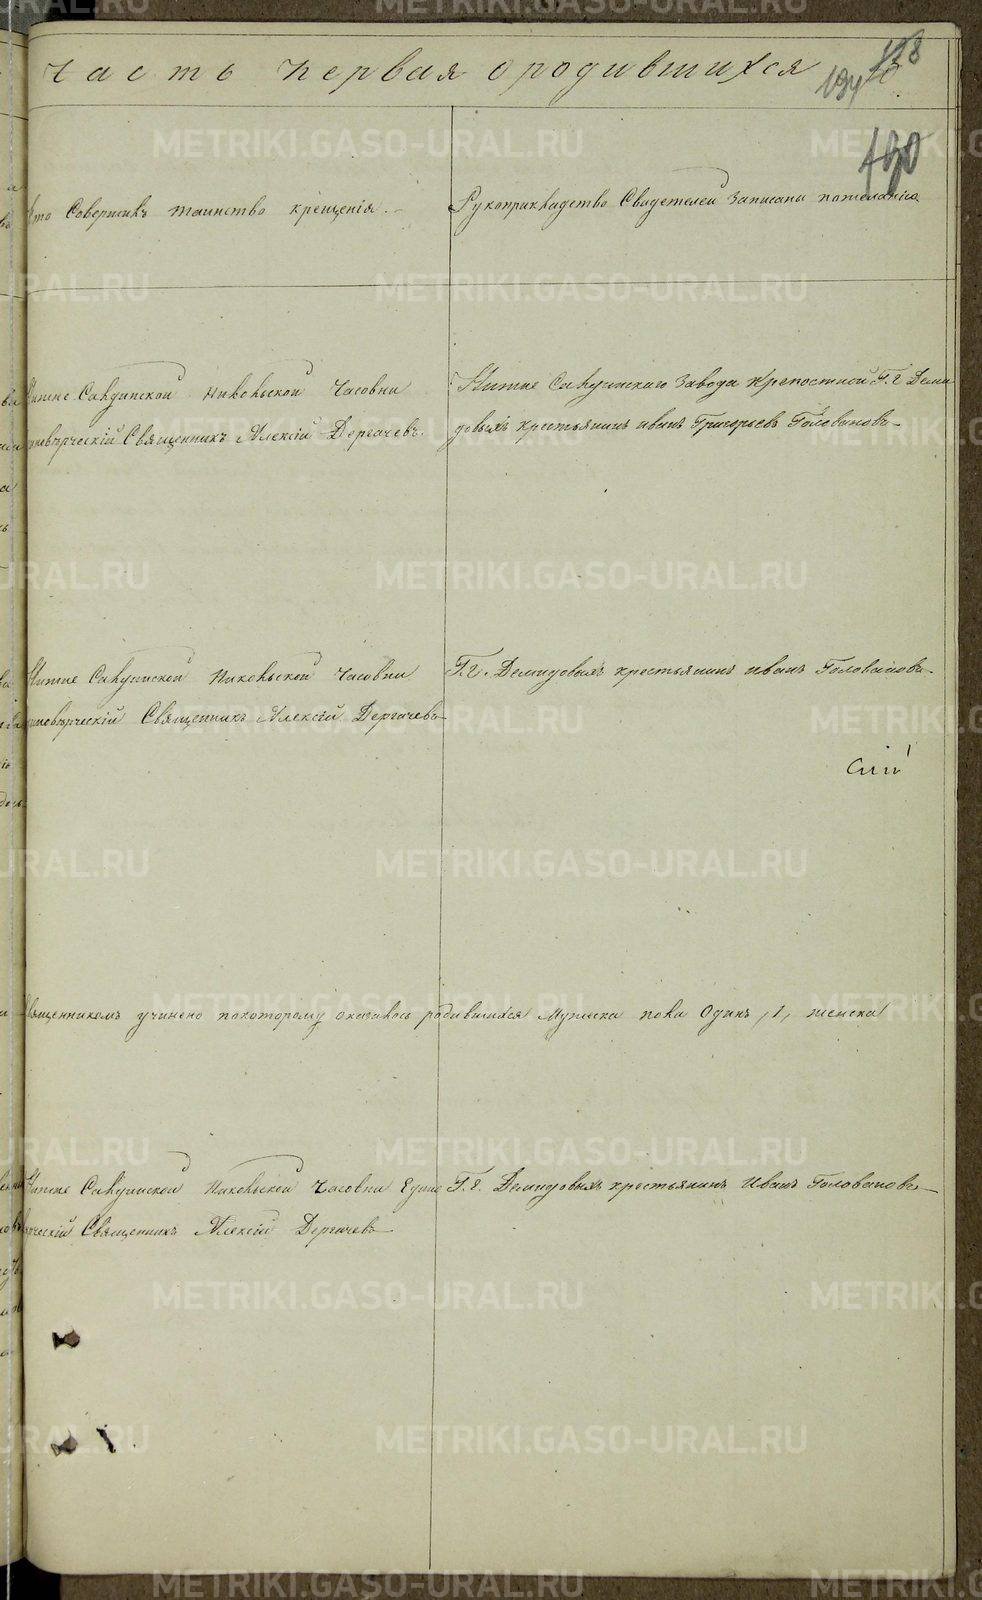 Часть первая о родившихся
134
190
Кто Совершилъ таинство крещенія.
Рукоприкладство Свидетелей Записано пожеланію
Нижне Салдинской Никольской Часовни
единоверческій Священникъ Алексій Дергачевъ.
Нижне Салдинскаго Завода Крепостной Г.г Деми
довыхъ крестьянинъ иванъ Григорьевъ Головановъ
Нижне Салдинской Никольской Часовни
единоверческій Священникъ Алексій Дергачевъ
Г.г. Демидовыхъ крестьянинъ иванъ Головановъ
Священникомъ учинено покоторому оказалось родившихся Мужеска пола Одинъ, 1, женска
Нижне Салдинской Никольской Часовни Едино
верческій Священникъ Алексій Дергачевъ
Г.г. Демидовыхъ крестьянинъ Иванъ Головановъ
METRIKI.GASO-URAL.RU